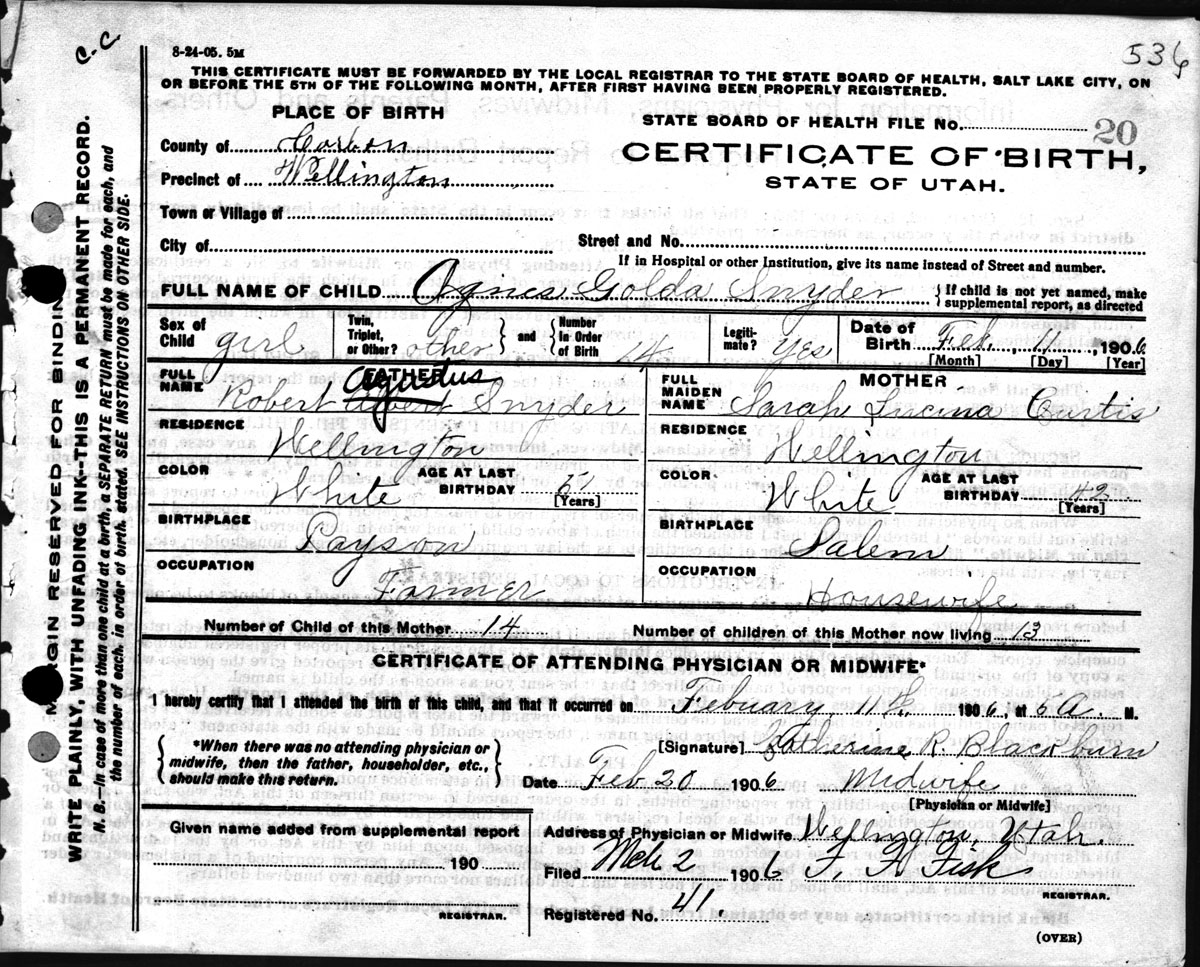 C.C.
8-24-05. 5M
536
THIS CERTIFICATE MUST BE FORWARDED BY THE LOCAL REGISTRAR TO THE STATE BOARD OF HEALTH, SALT LAKE CITY, ON
OR BEFORE THE 5TH OF THE FOLLOWING MONTH, AFTER FIRST HAVING BEEN PROPERLY REGISTERED.
PLACE OF BIRTH
STATE BOARD OF HEALTH FILE No. 20
County of Carbon
CERTIFICATE OF BIRTH,
Precinct of Wellington
STATE OF UTAH.
Town or Village of
City of
Street and No.
If in Hospital or other Institution, give its name instead of Street and number.
FULL NAME OF CHILD Agnes Golda Snyder { If child is not yet named, make supplemental report, as directed
Sex of Child girl Twin, Triplet, or Other? other } and { Number In Order of Birth 14 Legiti-mate? Yes Date of Birth Feb. 11 1906
[Month] [Day] [Year]
FATHER
MOTHER
FULL NAME Robert Agustus Albert Snyder
FULL MAIDEN NAME Sarah Lucina Curtis
RESIDENCE Wellington
RESIDENCE Wellington
COLOR White AGE AT LAST BIRTHDAY [Years]
COLOR White AGE AT LAST BIRTHDAY 42 [Years]
BIRTHPLACE Payson
BIRTHPLACE Salem
OCCUPATION Farmer
OCCUPATION Housewife
Number of Child of this Mother 14
Number of children of this Mother now living 13
CERTIFICATE OF ATTENDING PHYSICIAN OR MIDWIFE*
I hereby certify that I attended the birth of this child, and that it occurred on Febuary 11th, 1906, at 5 A. M.
{ *When there was no attending physician or midwife, then the father, householder, etc., should make this return. }
[Signature] Katherine R. Blackburn
Date Feb 20 1906 Midwife
[Physician or Midwife]
Given name added from supplemental report
190
REGISTRAR.
Address of Physician or Midwife Wellington, Utah.
Filed Mch 2 1906 F. F. Fisk
REGISTRAR.
Registered No. 41.
(OVER)
MARGIN RESERVED FOR BINDING
WRITE PLAINLY, WITH UNFADING INK--THIS IS A PERMANENT RECORD.
N. B.--In case of more than one child at a birth, a SEPARATE RETURN must be made for each, and
the number of each, in order of birth, stated. SEE INSTRUCTIONS ON OTHER SIDE.